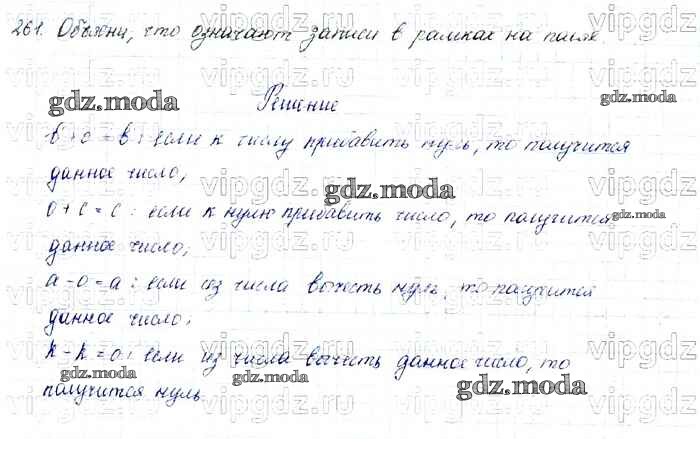 261. Объясни, что означают записи в рамках на полях.
Решение
b + 0 = b : если к числу прибавить нуль, то получится
данное число;
0 + c = c : если к нулю прибавить число, то получится
данное число;
a - 0 = a : если из числа вычесть нуль, то получится
данное число;
k - k = 0 : если из числа вычесть данное число, то
получится нуль.
gdz.moda
gdz.moda
gdz.moda
gdz.moda
gdz.moda
gdz.moda
gdz.moda
vipgdz.ru